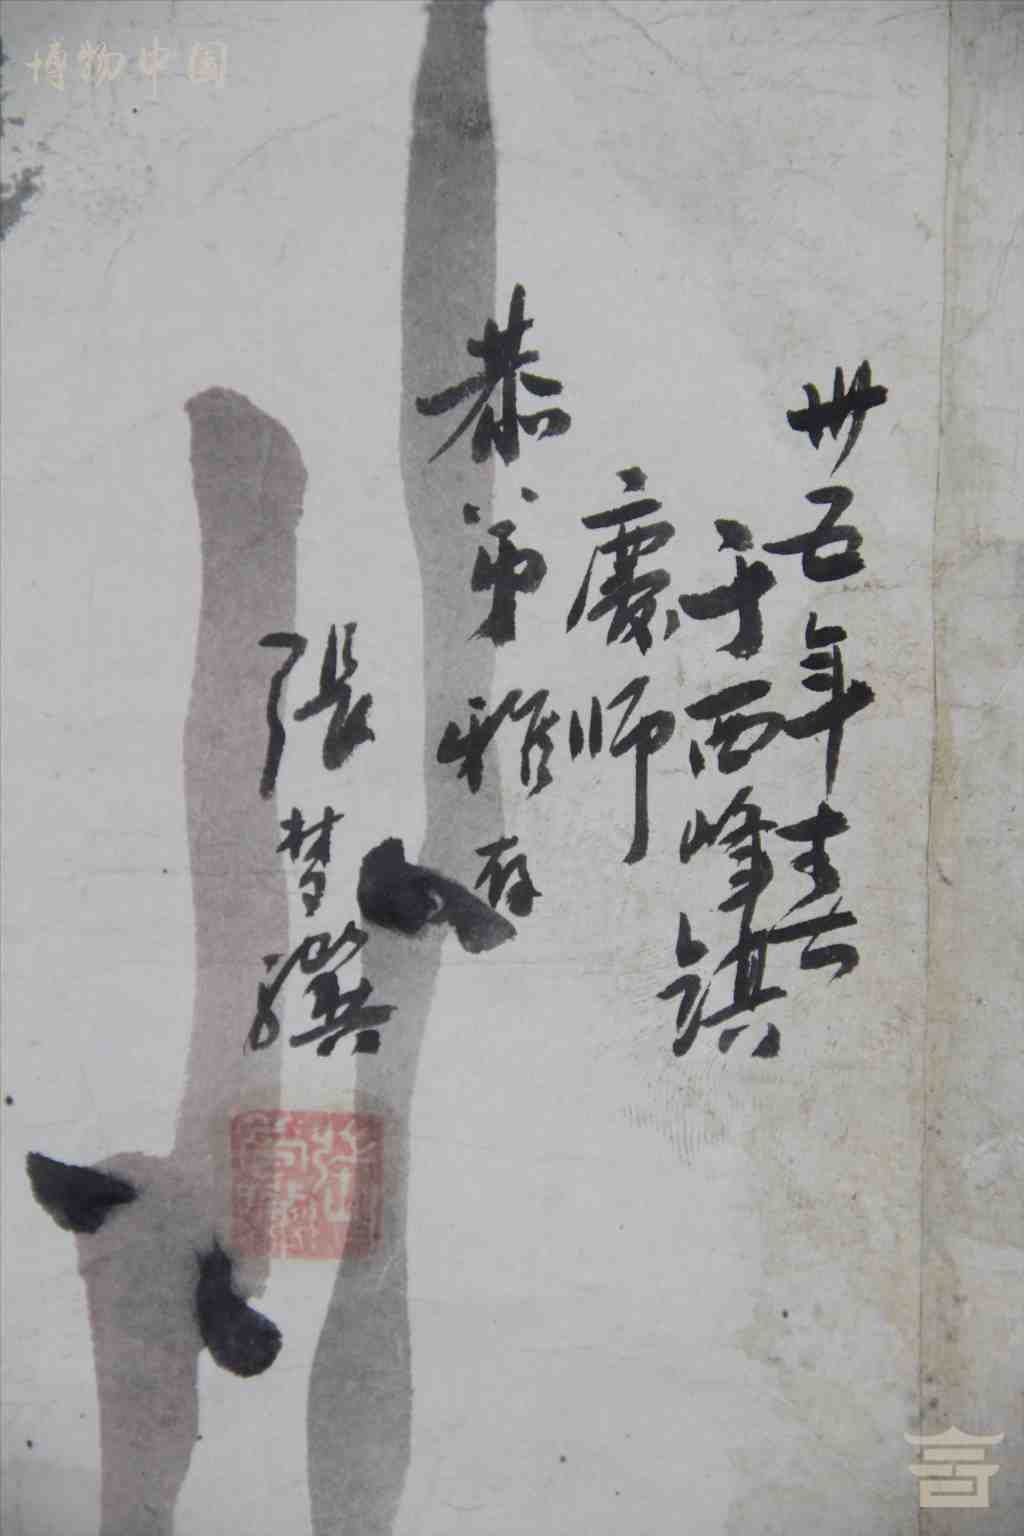 卅五年春
于西峰镇
庆师
恭弟雅存
張梦骥
博物中国